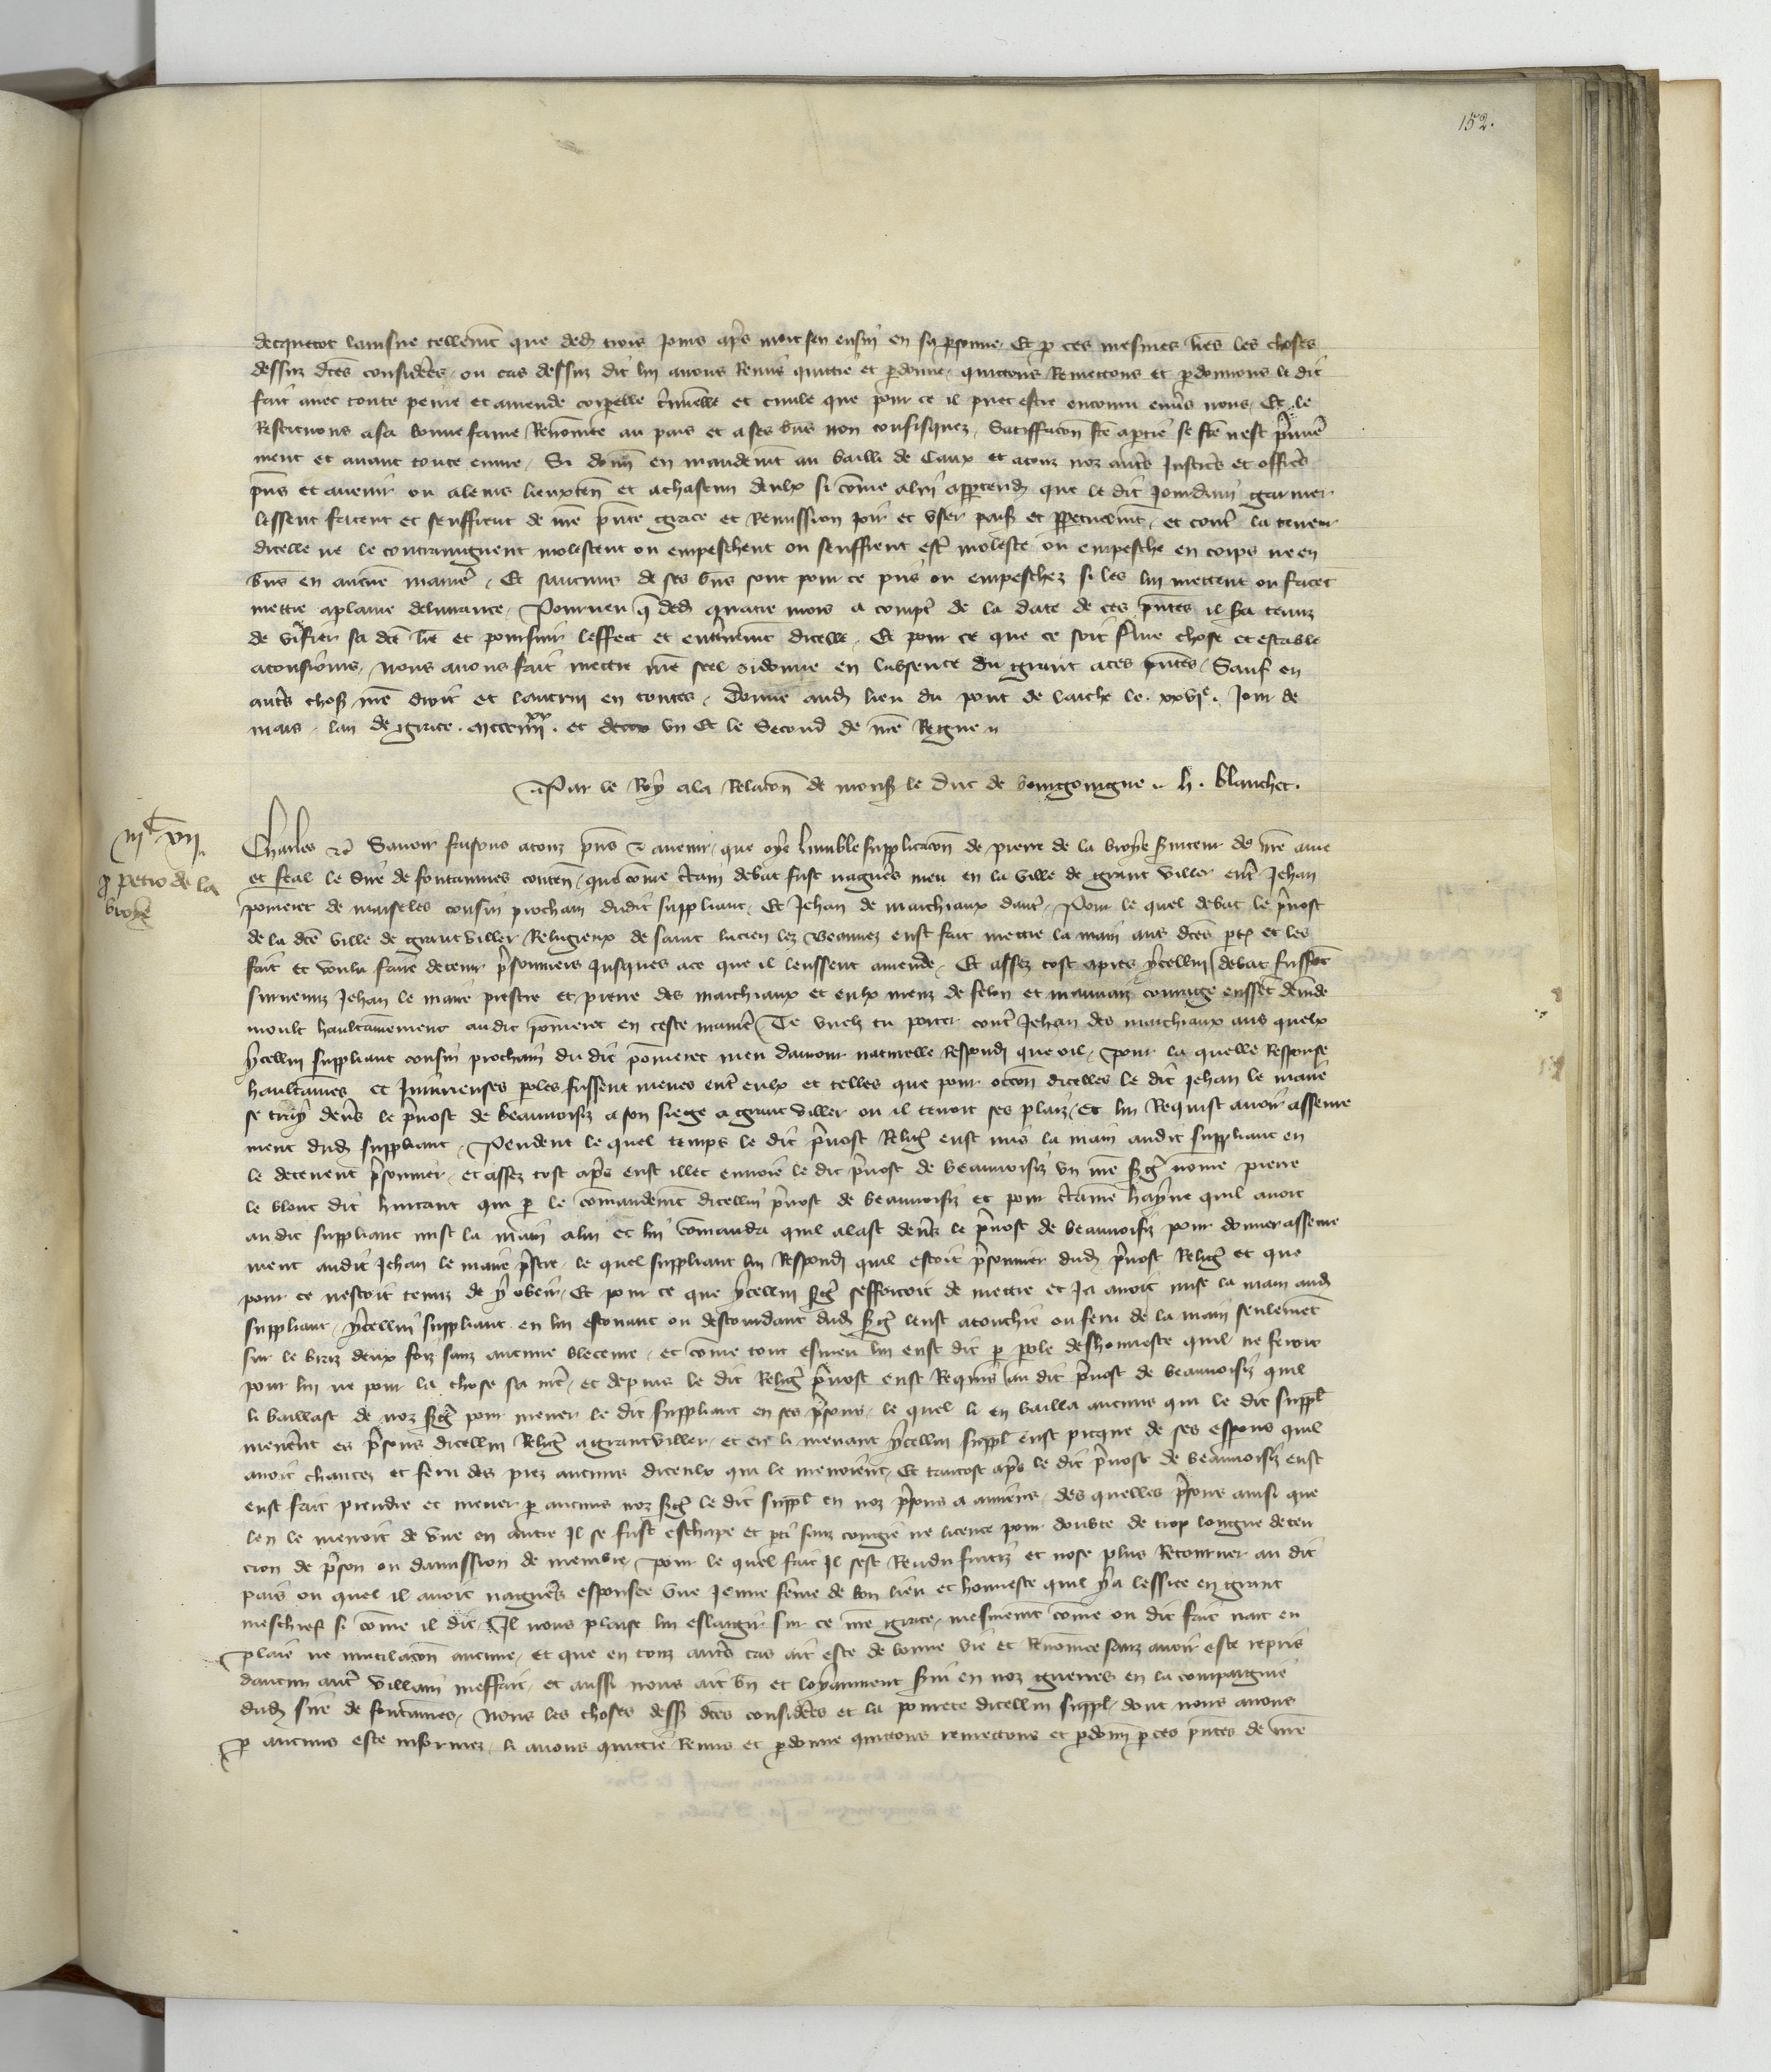 152.
decquetot lainsne tellement que ded trois jours aps mort sen ensui en sa personne. Et p ces mesmes lres les choses
dessuz dces considerees ou cas dessuz dit lui avons Remis quittie et pdonne, quittons Remettons et pdonnons le dit
fait avec toute peine et amende corpelle crimelle et civile que pour ce il puet estre encouru envs nous, Et le
Restituons a sa bonne fame Renomee au pais et a ses bns non confisquez, Satiffacon fte a ptie se fte nest prmiere
ment et avant toute euvre, Si donn en mandemt au bailli de Caux et a touz noz autrs Justiciers et officrs
pns et avenir ou a leurs lieuxten et a chascun deulx si come a lui apptend que le dit Jourdain garnier
lessent facent et seuffrent de nre pnte grace et Remission joir et user paisib et ppetuelmt, et contr la teneur
dicelle ne le contraingnent molestent ou empeschent ou seuffrent estr moleste ou empeschie en corps ne en
bns en aucune manier, Et saucuns de ses bns sont pour ce pris ou empeschez si les lui mettent ou facet
mettre a plaine delivrance, Pourveu q ded quatre mois a compt de la date de ces pntes il sra tenuz
de vrifier sa dce lre et poursuir leffect et enterinemt dicelle, Et pour ce que ce soit ferme chose et estable
a tousjours, nous avons fait mettre nre seel ordonne en labsence du grant a ces pntes, Sauf en
autrs chos nre droit et lautrui en toutes, Donne aud lieu du pont de larche le xxvje jour de
mars, lan de grace mccciiijxx et un Et le Second de nre Regne
Par le Roy a la Relacon de mons le duc de bourgoingne h. blanchet.
iijc vij
p petro de la
broye
Charles &c Savoir faisons a touz pns & avenir, que oye lumble supplicacon de pierre de la broye sviteur de nre ame
et feal le Sire de fontaines conten, que come certain debat fust nagueres meu en la ville de grant viller entr Jehan
pomeret de maiseles cousin prochain dudit suppliant, Et Jehan de marchiaux dautr, Pour le quel debat le prvost
de la dce ville de grantviller Religieux de saint lucien lez Beauvez eust fait mettre la main aus dces pties et les
fait et voulu faire detenir prisonniers jusques a ce que il leussent amende, Et assez tost apres ycellui debat fussent
survenuz Jehan le maire prestre et pierre des marchiaux et eulx meuz de felon et mauvaiz courage eussent demde
moult haultainement au dit pomeret en ceste manier Te veulz tu porter contr Jehan des marchiaux aus quelx
ycellui suppliant cousin prochain du dit pomeret meu damour naturelle Respond que oil, Pour la quelle Response
haultaines et Injurieuses proles fussent meues entr eulx et telles que pour occon dicelles le dit Jehan le maire
se tray devs le prvost de beauvoisiz a son siege a grantviller ou il tenoit ses plaiz, Et lui Requist avoir asseure
ment dud suppliant, Pendent le quel temps le dit prvost Relig eust mis la main au dit suppliant en
le detenent prsonnier, et assez tost aps eust illec envoie le dit prvost de beauvoisiz un nre sgt nome pierre
le blont dit huitant qui p le comandemt dicellui prvost de beauvoisiz et pour certaine hayne quil avoit
au dit suppliant mist la main a lui et lui comanda quil alast devs le prvost de beauvoisiz pour donner asseure
ment audit Jehan le maire prstre, le quel suppliant lui Respond quil estoit prsonnier dud prvost Relig et que
pour ce nestoit tenuz de y obeir, Et pour ce que ycellui sgt sefforcoit de mettre et Ja avoit mise la main aud
suppliant, ycellui suppliant en lui escouant ou destourdant dud sgt leust atouchie ou feru de la main seulemet
sur le briz deux foiz sanz aucune bleceure, et come tout esmeu lui eust dit p prole deshonneste quil ne feroit
pour lui ne pour la chose sa mer, et depuis le dit Relig prvost eust Requis au dit prvost de beauvoisiz quil
li baillast de noz sgs pour mener le dit suppliant en ses prsons, le quel li en bailla aucuns qui le dit suppl
menerent es prsons dicellui Relig a grantviller, et en li menant ycellui suppl eust picque de ses esperons quil
avoit chaucez et feru des piez aucuns diceulx qui le menoient, Et tantost aps le dit prvost de beauvoisiz eust
eust fait prendre et mener p aucuns noz sgs le dit suppl en noz prsons a amiens, des quelles prsons ainsi que
len le menoit de une en autre Il se fust eschape et pti sanz congie ne licence pour doubte de trop longue deten
cion de prson ou damission de membre, Pour le quel fait Il sest Rendu fuitiz et nose plus Retourner au dit
pais ou quel il avoit nagueres espousee une Jeune feme de bon lieu et honneste quil y a lessiee en grant
meschief si come il dit, Il nous plaise lui eslargir sur ce nre grace, mesmemt come ou dit fait nait eu
plaie ne mutilacon aucune, et que en touz autrs cas ait este de bonne vie et Renomee sanz avoir este repris
daucun autr villain meffait, et aussi nous ait bn et loyaument svi en noz guerres en la compaignie
dud sire de fontaines, Nous les choses dess dces considerees et la povrete dicellui suppl, dont nous avons
p aucuns este informez, li avons quittie Remis et pdonne quittons remettons et pdonn p ces pntes de nre